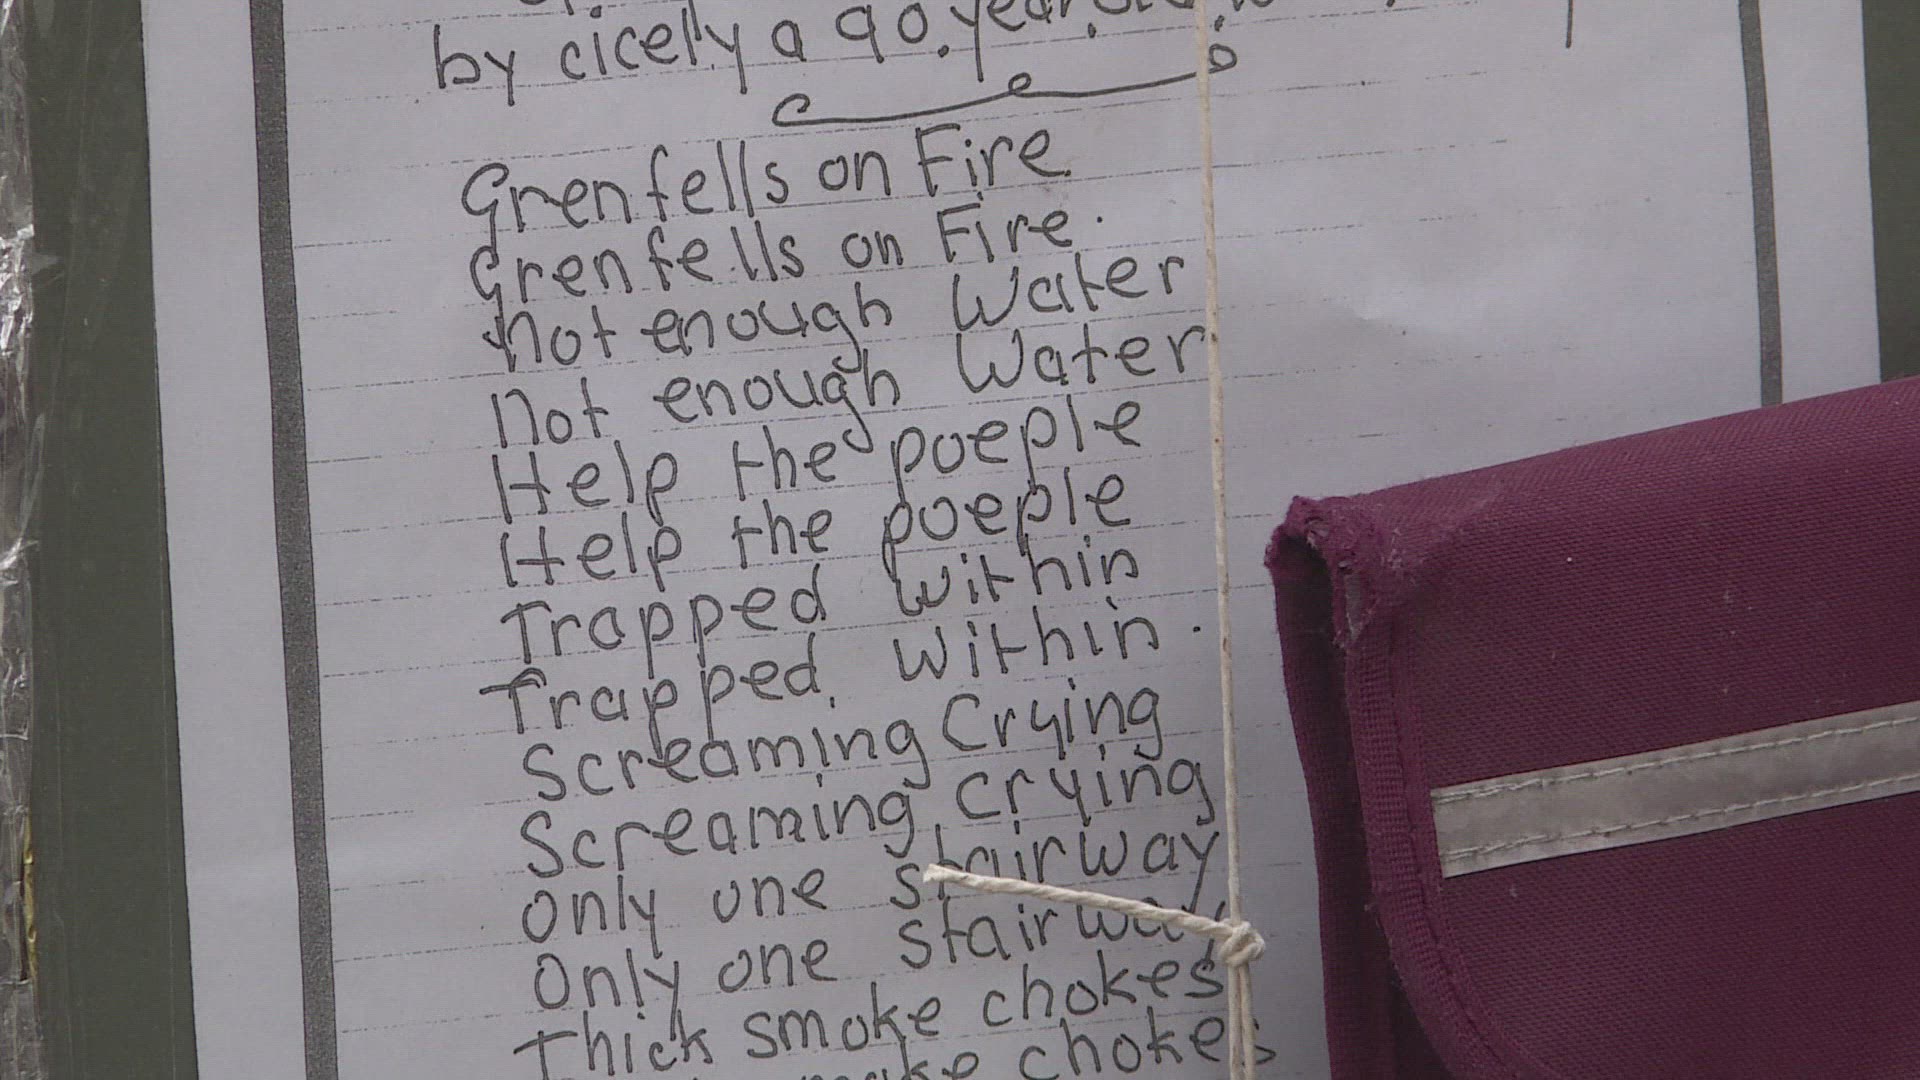 by cicely a 90. year
Grenfells on Fire
Grenfells on Fire.
not enough Water
not enough Water
Help the poeple
Help the poeple
Trapped within
Trapped. within.
Screaming Crying
Screaming, crying
Only one stairway
Only one stairway
Thick smoke chokes
chokes